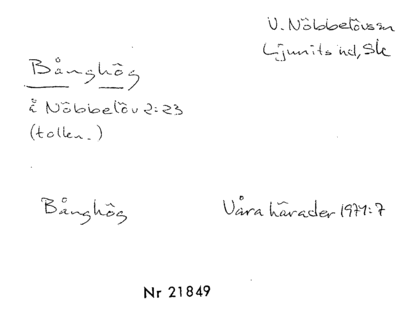 V. Nöbbelövs sn
Ljunits hd, Sk
Bånghög
i Nöbbelöv 2:23
(tolkn.)
Bånghög
Våra härader 1971:7
Nr 21849